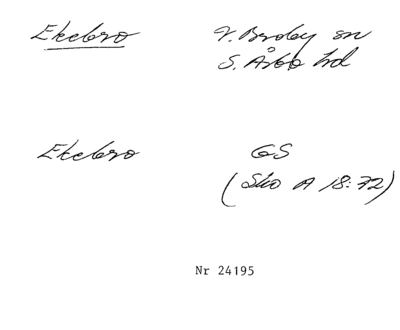 Ekebro V. Broby sn
S. Åsbo hd
Ekebro GS
(Sko A 18:72)
Nr 24195